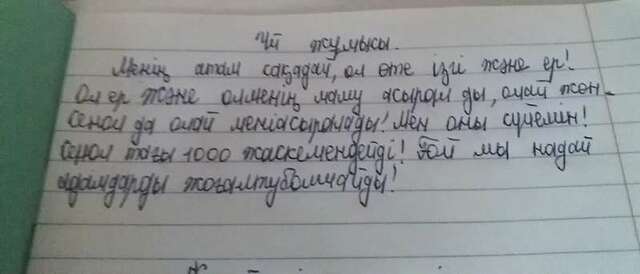 Үй жұмысы.
Менің атам сақадай, ол өте ізгі және ер!
Ол ер және олменің маму асырам ды, олай жөн-
Сенол да олай меніасыромады! Мен оны сүйемін!
Сенол тағы 1000 жаскемендейді! Ғой мы надай
адамдарды жоғамтубомчайды!